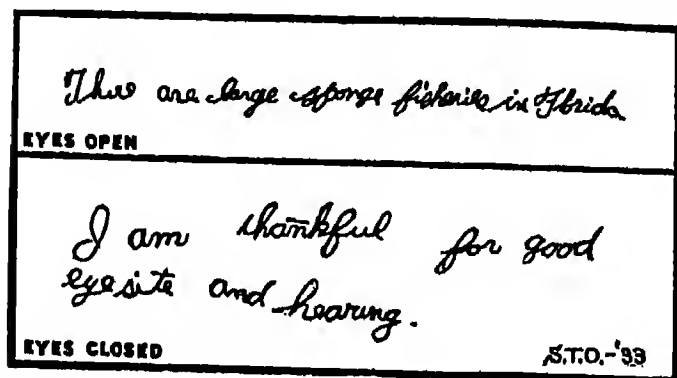 There are large sponge fisheries in Florida.
EYES OPEN
I am thankful for good
eyesite and hearing.
EYES CLOSED
S.T.O.-'33